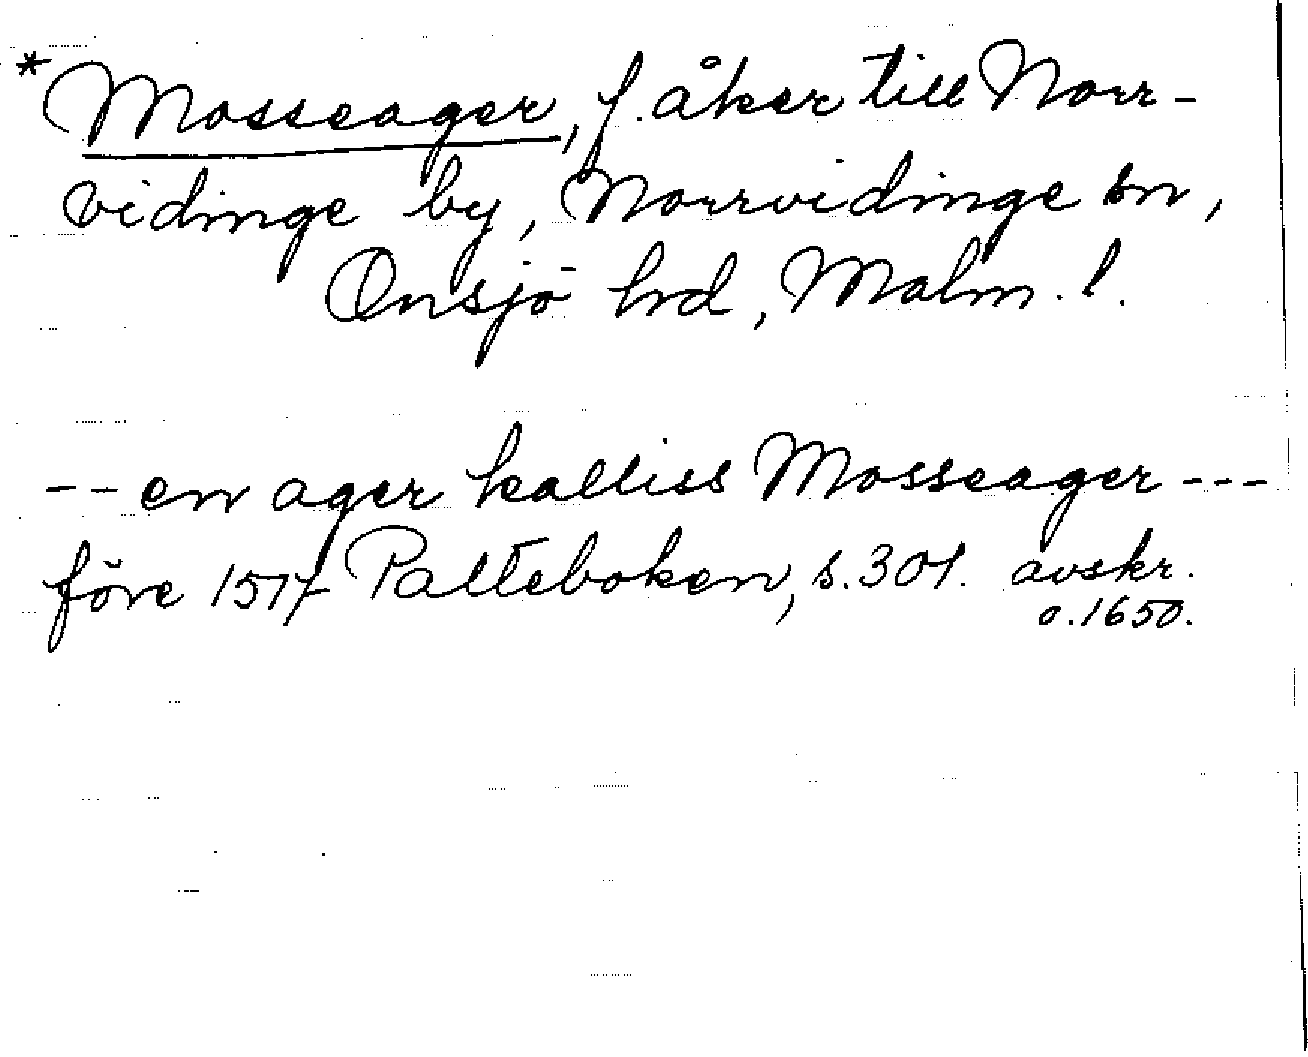 *Mosseager, f. åker till Norr-
vidinge by, Norrvidinge sn,
Onsjö hrd, Malm. l.
-- en ager kalliss Mosseager ---
före 1517 Palteboken, s. 301. avskr.
o. 1650.